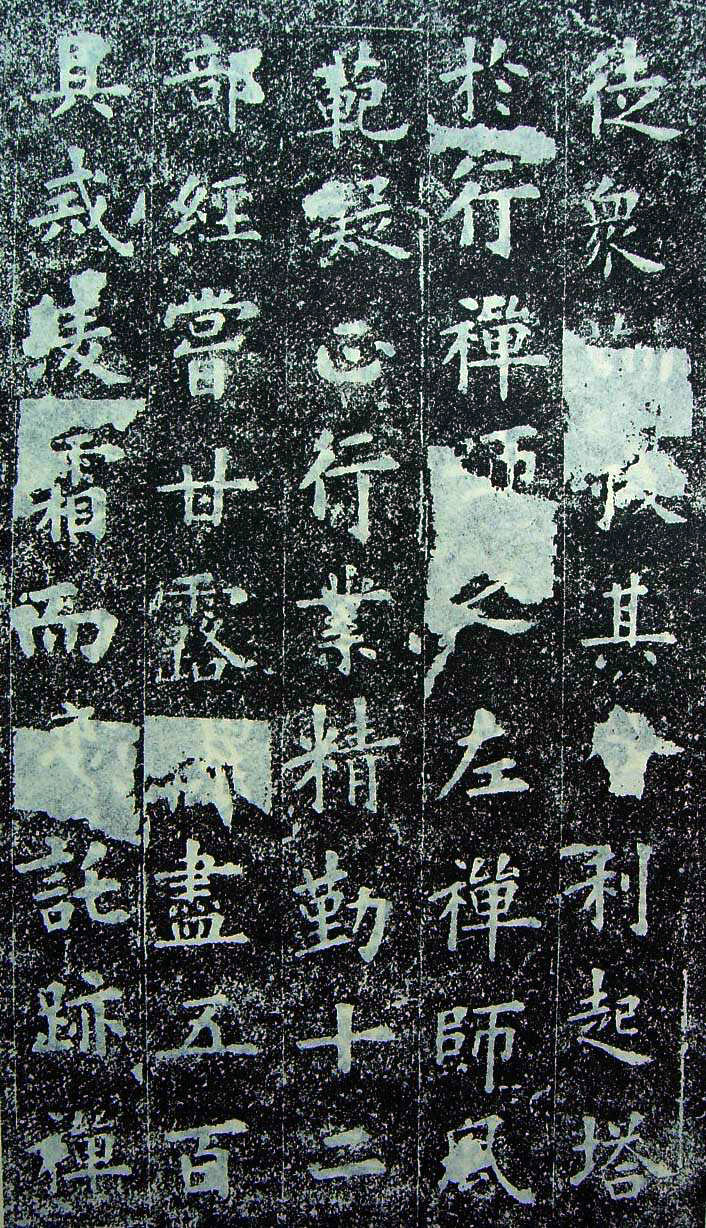 徒衆 收其 利起塔
於行禪師之左禪師風
範凝正行業精勤十二
部經嘗甘露 盡五百
具戒凌霜而 託跡禪